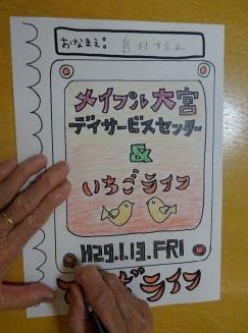 おなまえ:
メイプル大宮
デイサービスセンター
&
いちごライフ
H29.1.13.FRI
ライフ